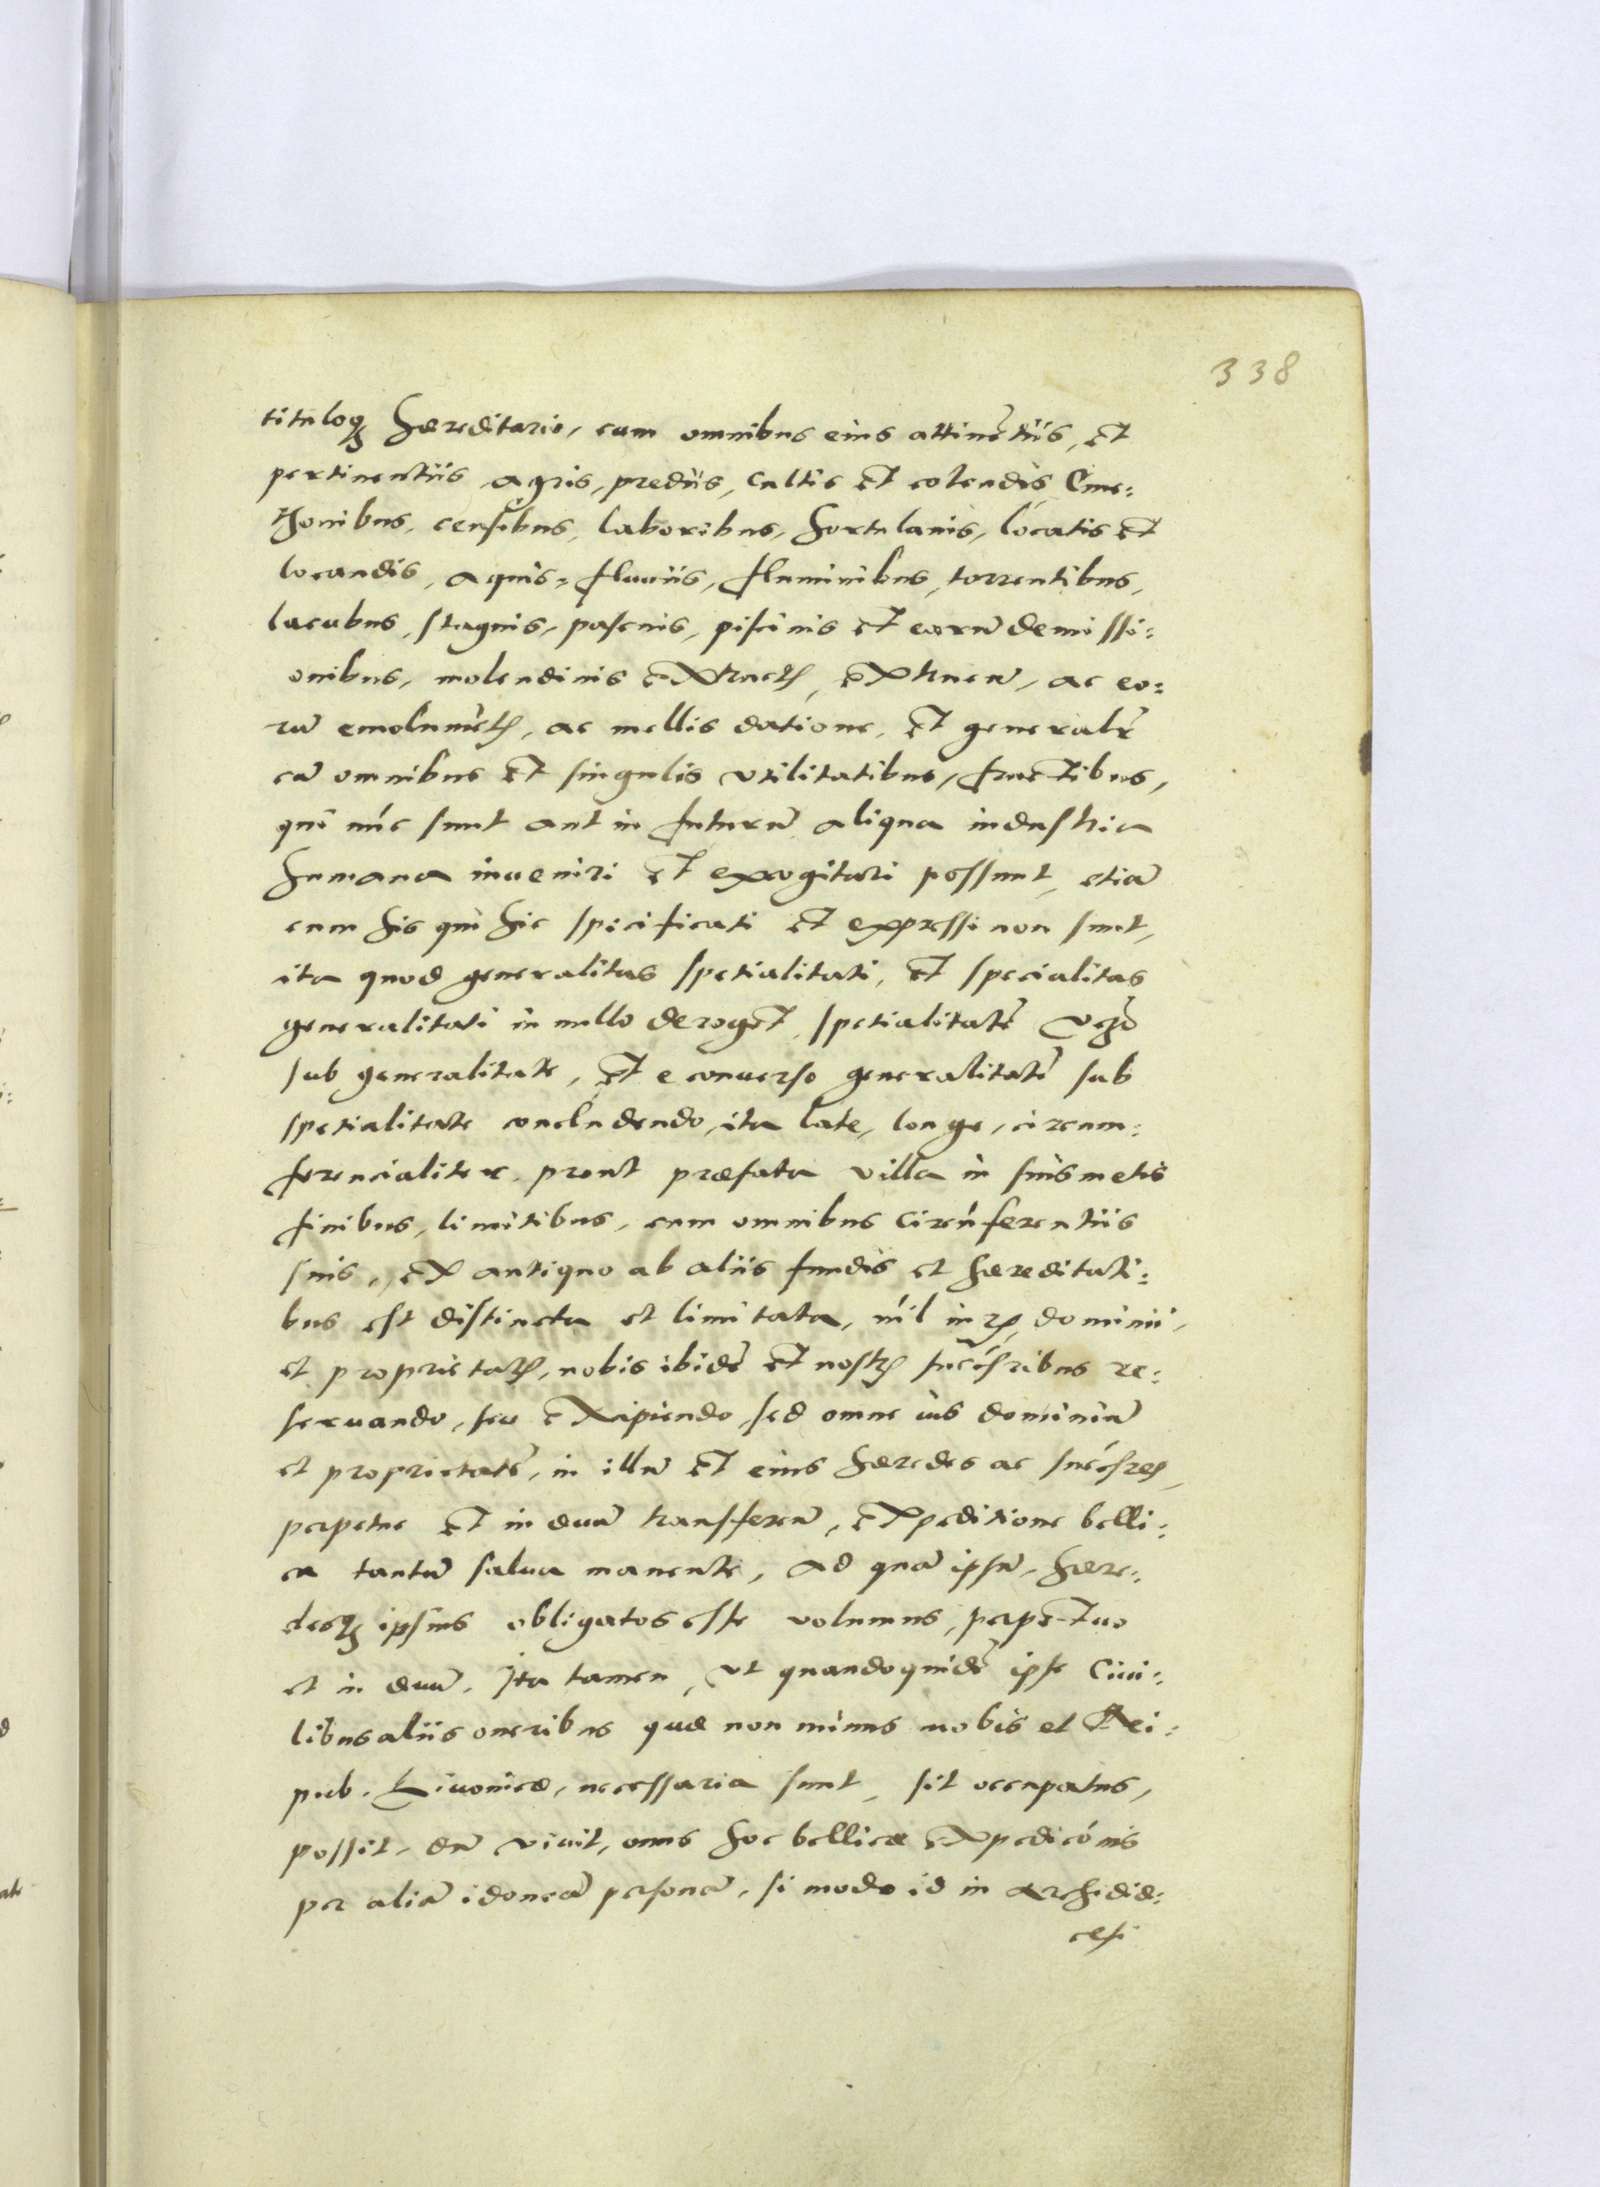 338
tituloq₃ hæreditario, cum omnibus eius attinẽtiis, et
pertinentiis agris, prediis, cultis et colendis, Cme:
thonibus, censibus, laboribus, hortulanis, locatis et
locandis, aquis, fluuiis, fluminibus, torrentibus,
lacubus, stagnis, pascuis, piscinis et earũ demissi:
onibus, molendinis extructꝭ, extruen̄, ac eo:
rũ emolumẽtꝭ, ac mellis datione, et generalr̃
cũ omnibus et singulis vtilitatibus, fructibus,
qui nũc sunt aut in futurũ aliqua industria
humana inueniri et excogitari possunt, etiã
cum his qui hic specificati et expressi non sunt,
ita quod generalitas spetialitati, et specialitas
generalitati in nullo deroget, spetialitatẽ verò
sub generalitate, et e conuerso generalitatẽ sub
spetialitate concludendo, ita late, longe, circum:
ferencialiter, prout præfata villa in suismetis
finibus, limitibus, cum omnibus circũferentiis
suis, ex antiquo ab aliis fundis et hæreditati:
bus est distincta et limitata, nil iurꝭ, dominii,
et proprietatꝭ, nobis ibidẽ et nostrꝭ succ̃sribus re:
seruando, seu excipiendo, sed omne ius dominiũ
et proprietatẽ, in illũ et eius hæredes ac succ̃sres,
perpetue et in æuũ transferen̄, expeditione belli:
ca tantũ salua manente, ad quã ipsũ, hære:
desq₃ ipsius obligatos esse volumus, perpetuo
et in æuũ. Ita tamen, vt quandoquidẽ ipse Ciui:
libus aliis oneribus quæ non minus nobis et Rei:
pub. Liuonicæ, necessaria sunt, sit occupatus,
possit, dũ viuit, onus hoc bellicæ expedicõnis
per aliã idoneã personã, si modo id in Archidiœ:
cesi